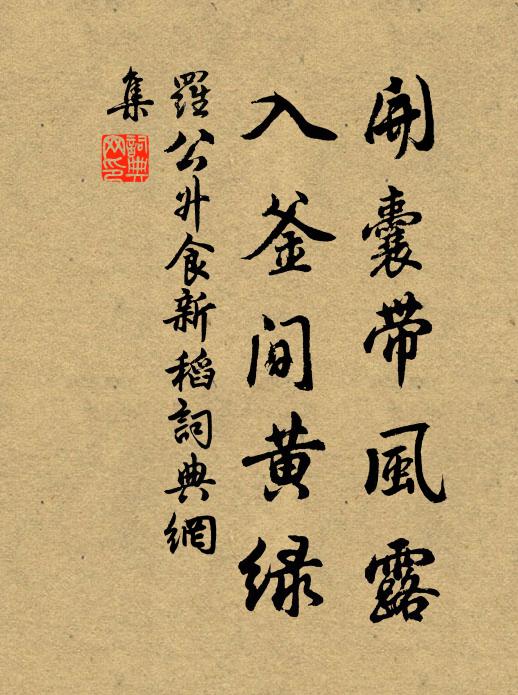 開囊帶風露
入釜間黄緑
羅公升食新稻詞典網
集
詞典
网印